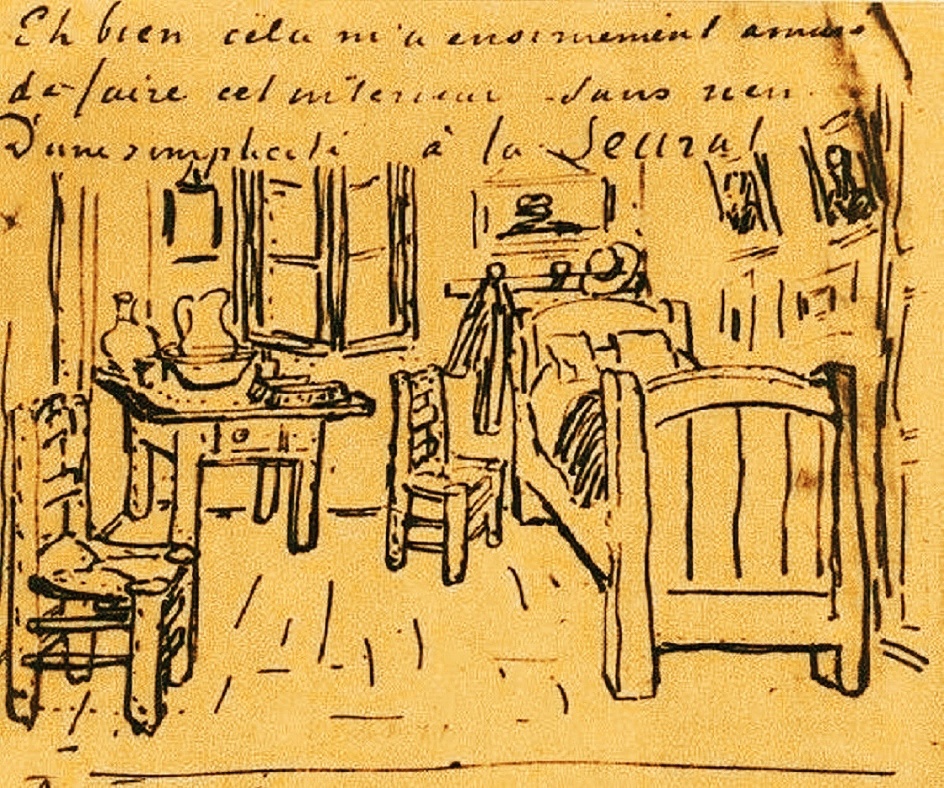 Eh bien cela m'a enormement amusé
de faire cet interieur sans rien
D'une simplicité à la Seurat